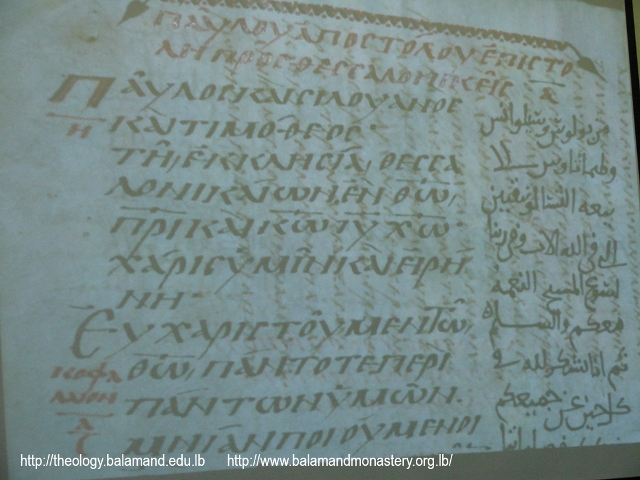 ΠΑΥΛΟΥ ΑΠΟCΤΟΛΟΥ ΕΠΙCΤΟ
ΛΗ ΠΡΟC ΘΕCCΑΛΟΝΙΚΕΙC Α̅
ΠΑΥΛΟC ΚΑΙ CΙΛΟΥΑΝΟC
Η
ΚΑΙ ΤΙΜΟΘΕΟC·
ΤΗ, ΕΚΚΛΗCΙΑ, ΘΕCCΑ
ΛΟΝΙΚΑΙΩΝ, ΕΝ ΘΩ,
ΠΡΙ ΚΑΙ ΚΩ ΙΥ ΧΩ·
ΧΑΡΙC ΥΜΙΝ ΚΑΙ ΕΙΡΗ
ΝΗ·
ΕΥΧΑΡΙCΤΟΥΜΕΝ ΤΩ,
ΘΩ, ΠΑΝΤΟΤΕ ΠΕΡΙ
ΠΑΝΤΩΝ ΥΜΩΝ.
ΜΝΙΑΝ ΠΟΙΟΥΜΕΝΟΙ
ΚΕΦΑ
ΛΑΙΟΝ
Α
من بولوس وسلوانس
وطيماثاوس الى
بيعه
التي في الله الاب وفي ربنا
يسوع المسيح النعمه
معكم والسلام
ثم انا نشكر لله في
كل حين عن جميعكم
http://theology.balamand.edu.lb http://www.balamandmonastery.org.lb/